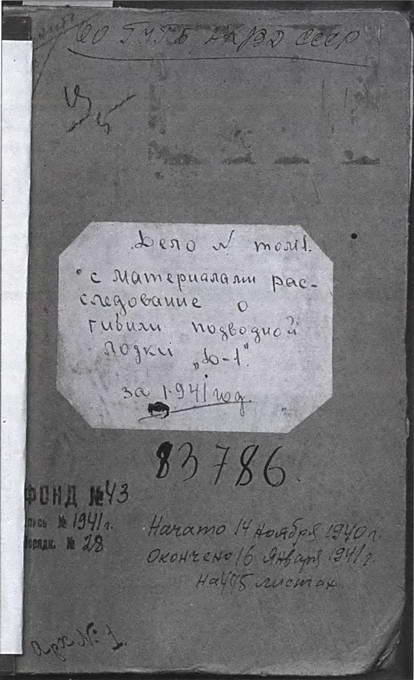 ОО ГУГБ НКВД СССР
Дело № том 1.
с материалами рас-
следование о
гибили подводной
лодки „Д-1".
за 1941 год.
83786.
ФОНД №43
опись № 1941 г.
порядк. № 28
Начато 14 ноября 1940 г.
Окончено 16 января 1941 г.
листах
Арх №: 1.